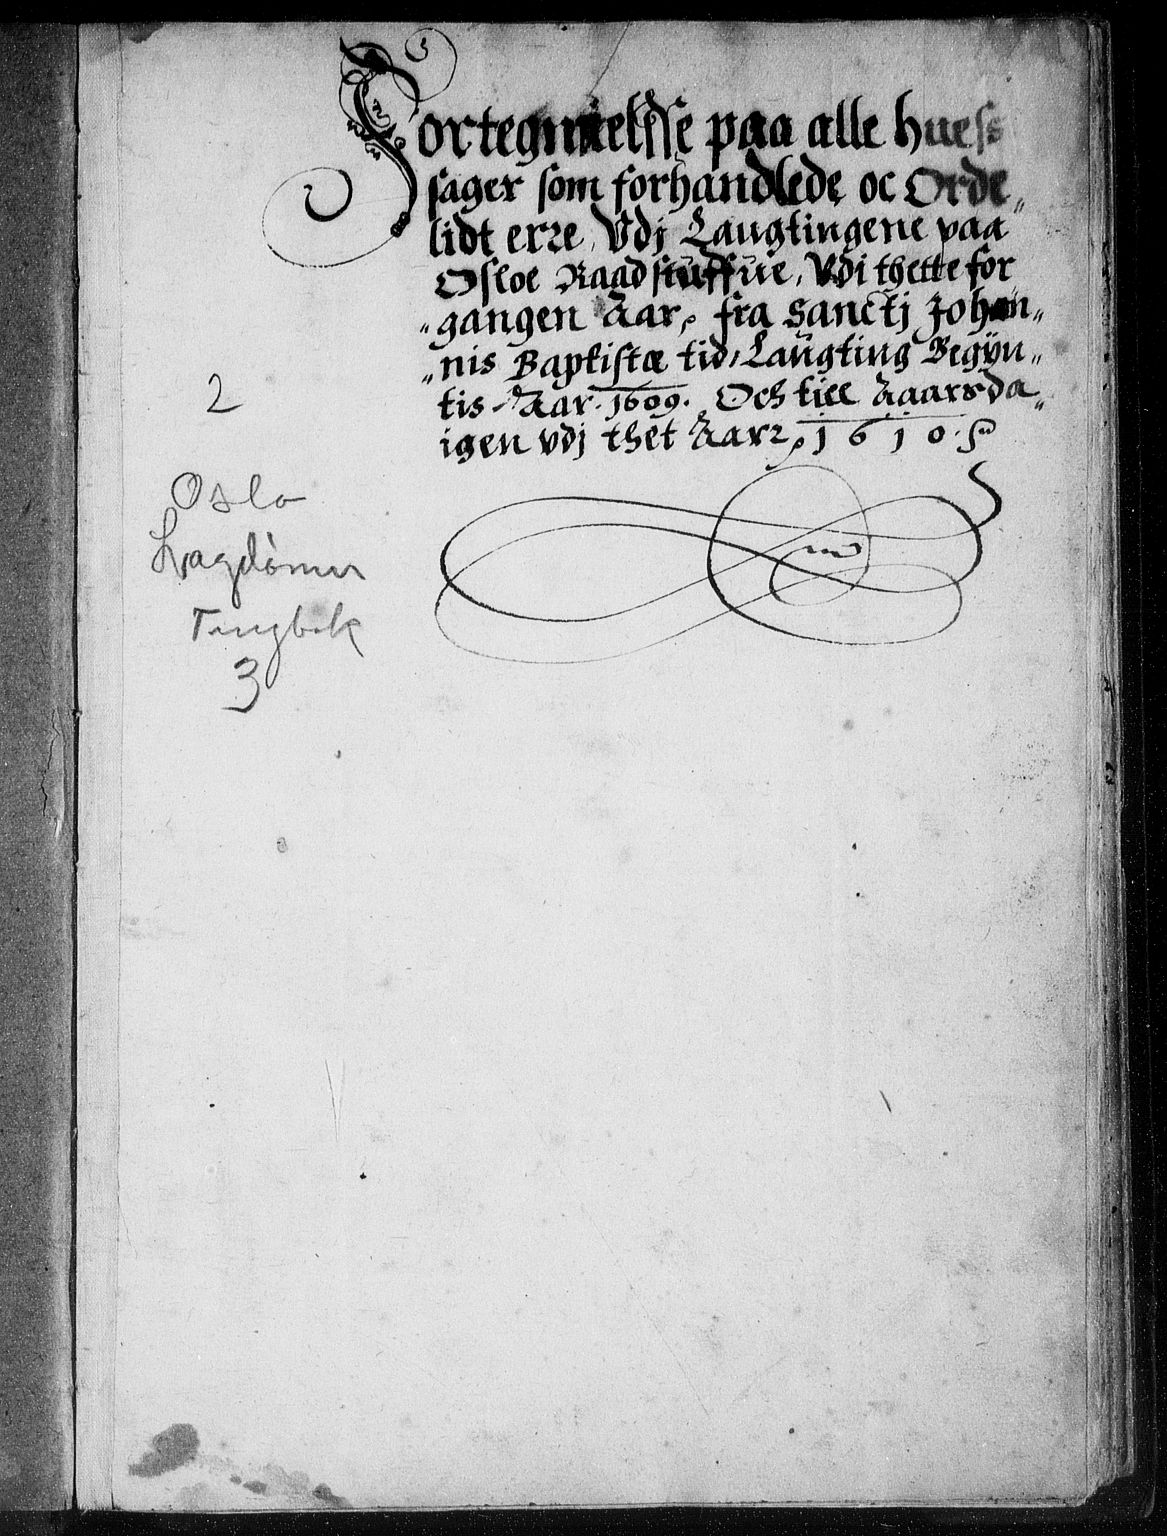 Fortegnnelsse paa alle hues
sager som forhandlede oc Orde„
lidt erre, Vdj Laugtingene paa
Osloe Raadstuffue, Vdi thette for
„gangen Aar, fra Sanctj Johan„
„nis Baptistæ tid, Laugting Begÿn„
tis Aar 1609. Och till Aarsda„
igen vdj thet Aar, 1610.
2
Oslo
Lagdømme
Tingbok
3